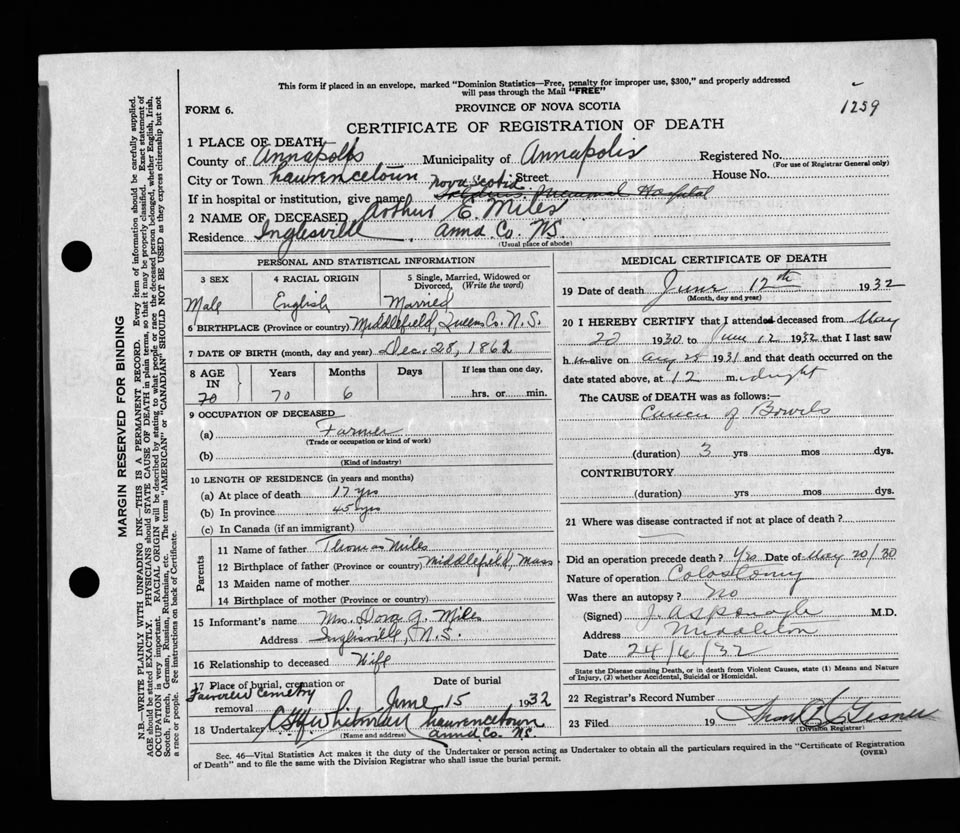 This form if placed in an envelope, marked "Dominion Statistics—Free, penalty for improper use, $300," and properly addressed
will pass through the Mail "FREE"
1259
FORM 6.
PROVINCE OF NOVA SCOTIA
CERTIFICATE OF REGISTRATION OF DEATH
1 PLACE OF DEATH
County of Annapolis Municipality of Annapolis Registered No.
(For use of Registrar General only)
City or Town Lawrencetown Street House No.
Nova Scotia
If in hospital or institution, give name Memorial Hospital
2 NAME OF DECEASED Arthur E. Miles
Residence Inglesville Anna Co. N.S.
(Usual place of abode)
PERSONAL AND STATISTICAL INFORMATION
3 SEX
Male
4 RACIAL ORIGIN
English
5 Single, Married, Widowed or
Divorced, (Write the word)
Married
6 BIRTHPLACE (Province or country) Middlefield, Queens Co. N.S.
7 DATE OF BIRTH (month, day and year) Dec. 28, 1862
8 AGE
IN
70
Years
70
Months
6
Days
If less than one day,
hrs. or min.
9 OCCUPATION OF DECEASED
(a) Farmer
(Trade or occupation or kind of work)
(b)
(Kind of industry)
10 LENGTH OF RESIDENCE (in years and months)
(a) At place of death 17 yrs
(b) In province 45 yrs
(c) In Canada (if an immigrant)
Parents
11 Name of father Thomas Miles
12 Birthplace of father (Province or country) Middlefield, Mass
13 Maiden name of mother
14 Birthplace of mother (Province or country)
15 Informant's name Mrs. Dora G. Miles
Address Inglisville, N.S.
16 Relationship to deceased Wife
17 Place of burial, cremation or
removal
Fairview Cemetry
Date of burial
June 15 1932
18 Undertaker Whitman Lawrencetown
(Name and address) Anna. Co. N.S.
MEDICAL CERTIFICATE OF DEATH
19 Date of death June 12th 1932
(Month, day and year)
20 I HEREBY CERTIFY that I attended deceased from May
20 1930 to June 12 1932 that I last saw
h im alive on Aug 28 1931 and that death occurred on the
date stated above, at 12 m. idnight
The CAUSE of DEATH was as follows:—
Cancer of Bowels
(duration) 3 yrs mos dys.
CONTRIBUTORY
(duration) yrs mos dys.
21 Where was disease contracted if not at place of death?
Did an operation precede death? Yes Date of May 20/30
Nature of operation Colostomy
Was there an autopsy? No
(Signed) J. A. Sponagle M.D.
Address Middleton
Date 24/6/32
State the Disease causing Death, or in death from Violent Causes, state (1) Means and Nature
of Injury, (2) whether Accidental, Suicidal or Homicidal.
22 Registrar's Record Number
23 Filed 19 Gesner
(Division Registrar)
Sec. 46—Vital Statistics Act makes it the duty of the Undertaker or person acting as Undertaker to obtain all the particulars required in the "Certificate of Registration
of Death" and to file the same with the Division Registrar who shall issue the burial permit.
(OVER)
MARGIN RESERVED FOR BINDING
N.B.—WRITE PLAINLY WITH UNFADING INK—THIS IS A PERMANENT RECORD. Every item of information should be carefully supplied.
AGE should be stated EXACTLY. PHYSICIANS should STATE CAUSE OF DEATH in plain terms, so that it may be properly classified. Exact statement of
OCCUPATION is very important. RACIAL ORIGIN will be described by stating to what people or race the deceased person belonged, whether English, Irish,
Scotch, French, German, Russian, Ruthenian, etc. The terms "AMERICAN" or "CANADIAN" SHOULD NOT BE USED as they express citizenship but not
a race or people. See instructions on back of Certificate.